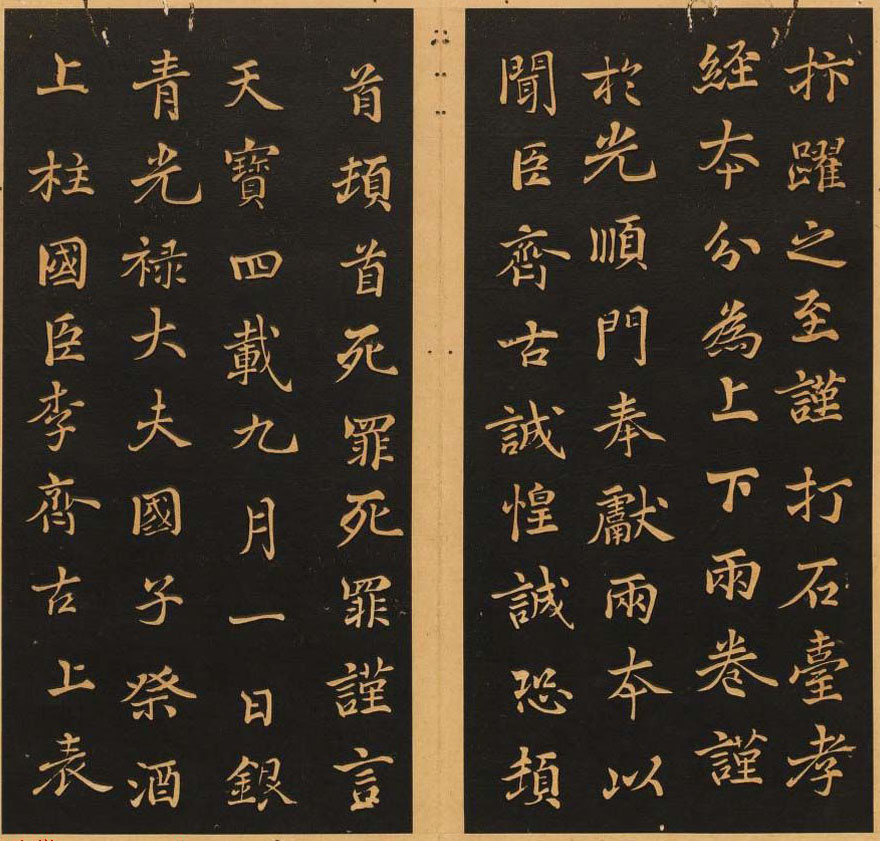 抃躍之至謹打石臺孝
經本分為上下兩卷謹
於光順門奉獻兩本以
聞臣齊古誠惶誠恐頓
首頓首死罪死罪謹言
天寶四載九月一日銀
青光禄大夫國子祭酒
上柱國臣李齊古上表